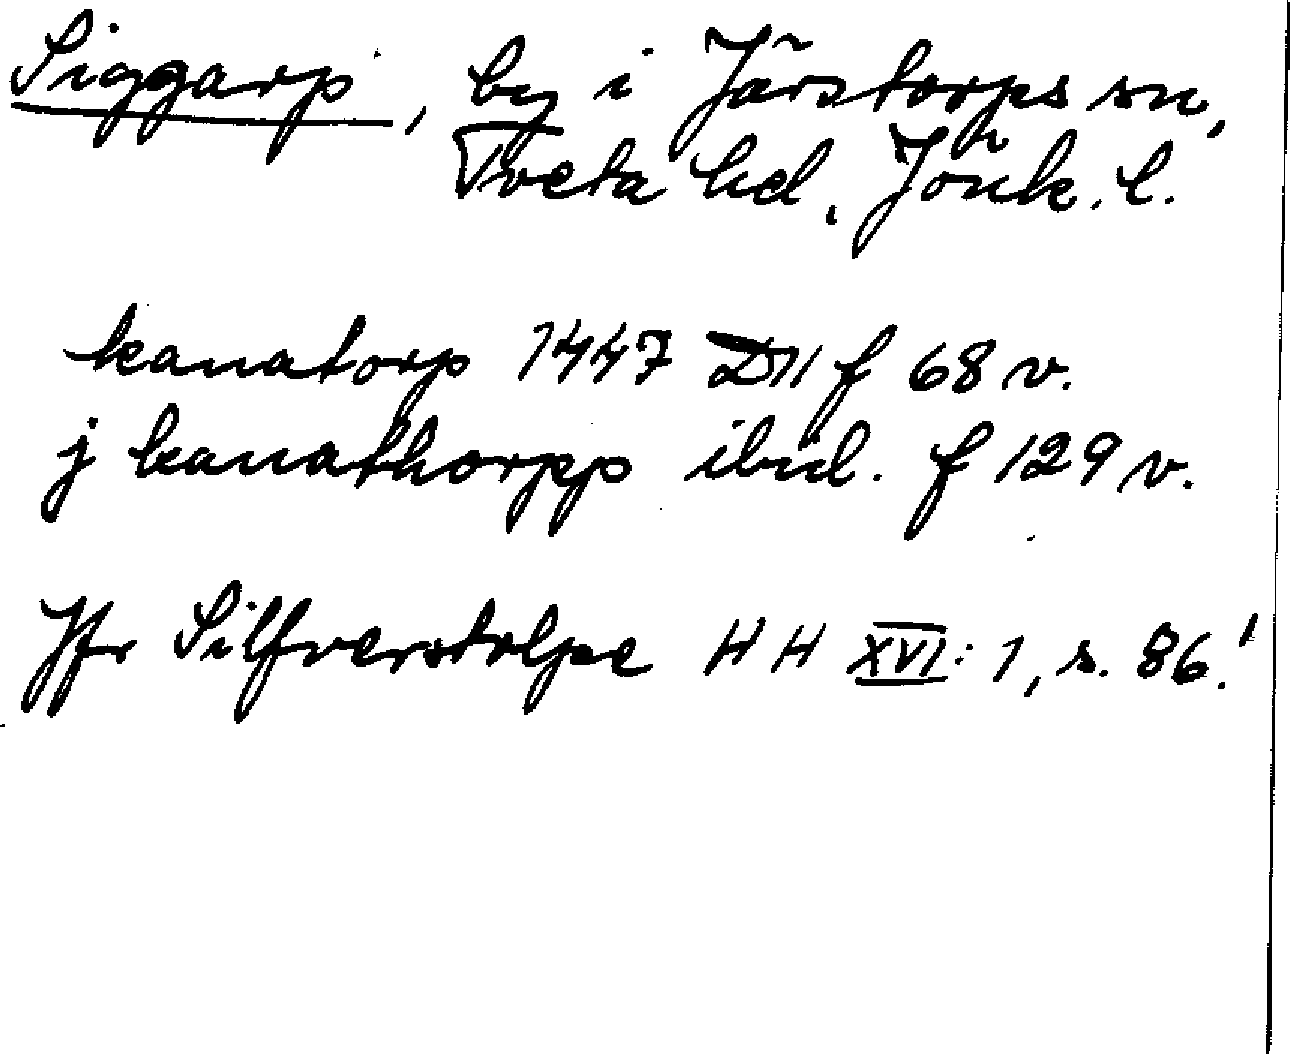 Siggarp, by i Järstorps sn,
Tveta hd, Jönk. l.
kanatorp 1447 D11 f 68 v.
j kanathorpp ibid. f 129 v.
Jfr Silfverstolpe HH XVI: 1, s. 86.!